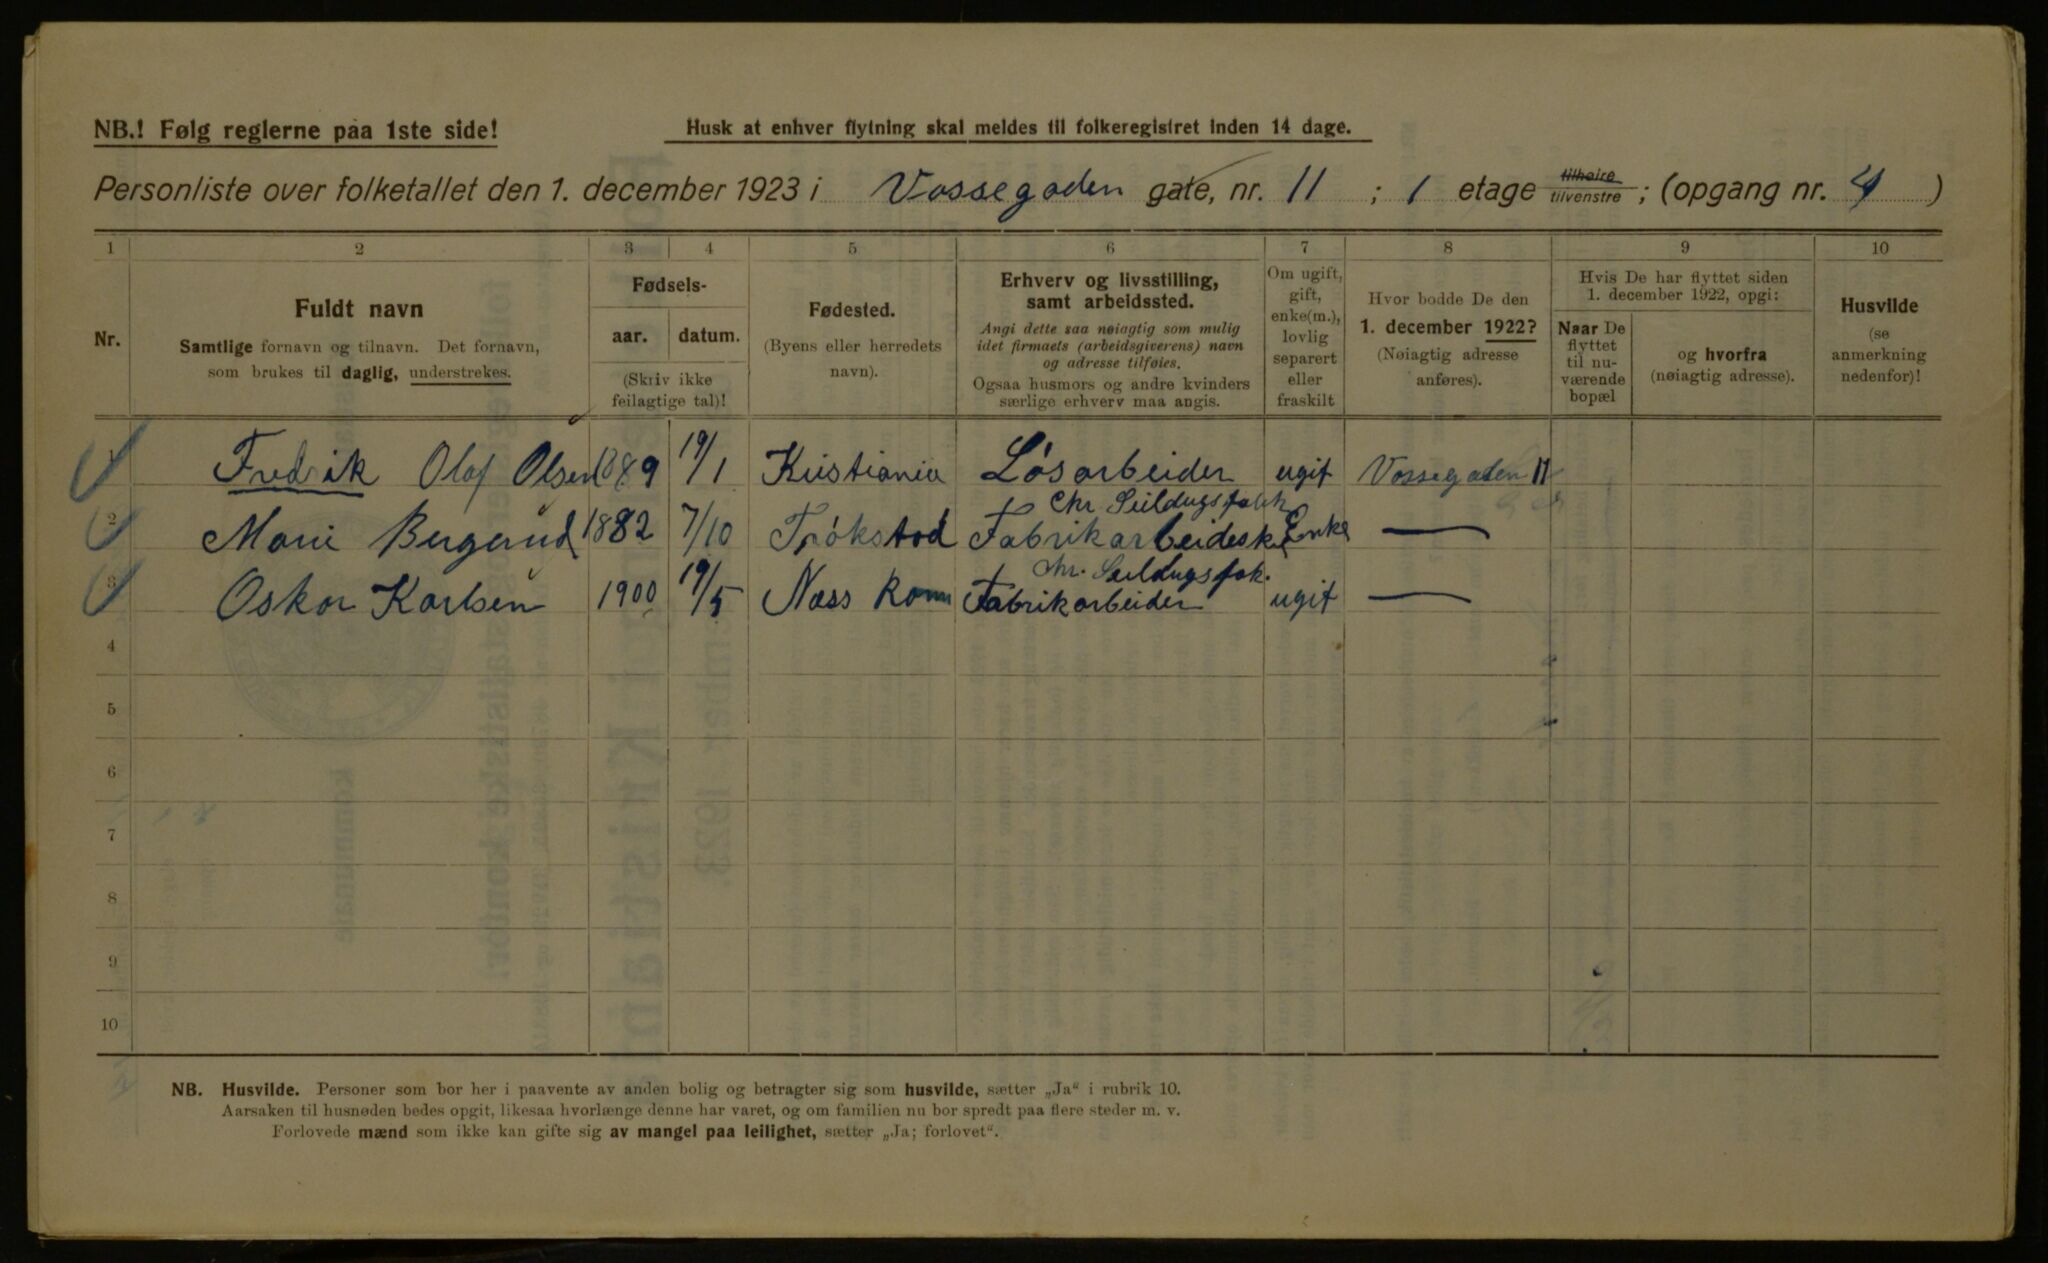 NB.! Følg reglerne paa 1ste side!
Husk at enhver flytning skal meldes til folkeregistret inden 14 dage.
Personliste over folketallet den 1. december 1923 i Vossegaden gate, nr. 11 ; 1 etage tilhøire/tilvenstre ; (opgang nr. 4 )
1 2 3 4 5 6 7 8 9 10
Nr.
Fuldt navn
Samtlige fornavn og tilnavn. Det fornavn,
som brukes til daglig, understrekes.
Fødsels-
aar. datum.
(Skriv ikke
feilagtige tal)!
Fødested.
(Byens eller herredets
navn).
Erhverv og livsstilling,
samt arbeidssted.
Angi dette saa nøiagtig som mulig
idet firmaets (arbeidsgiverens) navn
og adresse tilføies.
Ogsaa husmors og andre kvinders
særlige erhverv maa angis.
Om ugift,
gift,
enke(m.),
lovlig
separert
eller
fraskilt
Hvor bodde De den
1. december 1922?
(Nøiagtig adresse
anføres).
Hvis De har flyttet siden
1. december 1922, opgi:
Naar De
flyttet
til nu-
værende
bopæl
og hvorfra
(nøiagtig adresse).
Husvilde
(se
anmerkning
nedenfor)!
1 Fredrik Olaf Olsen 1889 19/1 Kristiania Løsarbeider ugift Vossegaden 11
Chr Seildugsfabrik
2 Marie Bergerud 1882 7/10 Trøkstad Fabrikarbeiderske Enke —
Chr. Seildugsfak.
3 Oskar Karlsen 1900 19/5 Næss Rom Fabrikarbeider ugift —
4
5
6
7
8
9
10
NB. Husvilde. Personer som bor her i paavente av anden bolig og betragter sig som husvilde, sætter „Ja“ i rubrik 10.
Aarsaken til husnøden bedes opgit, likesaa hvorlænge denne har varet, og om familien nu bor spredt paa flere steder m. v.
Forlovede mænd som ikke kan gifte sig av mangel paa leilighet, sætter „Ja; forlovet“.